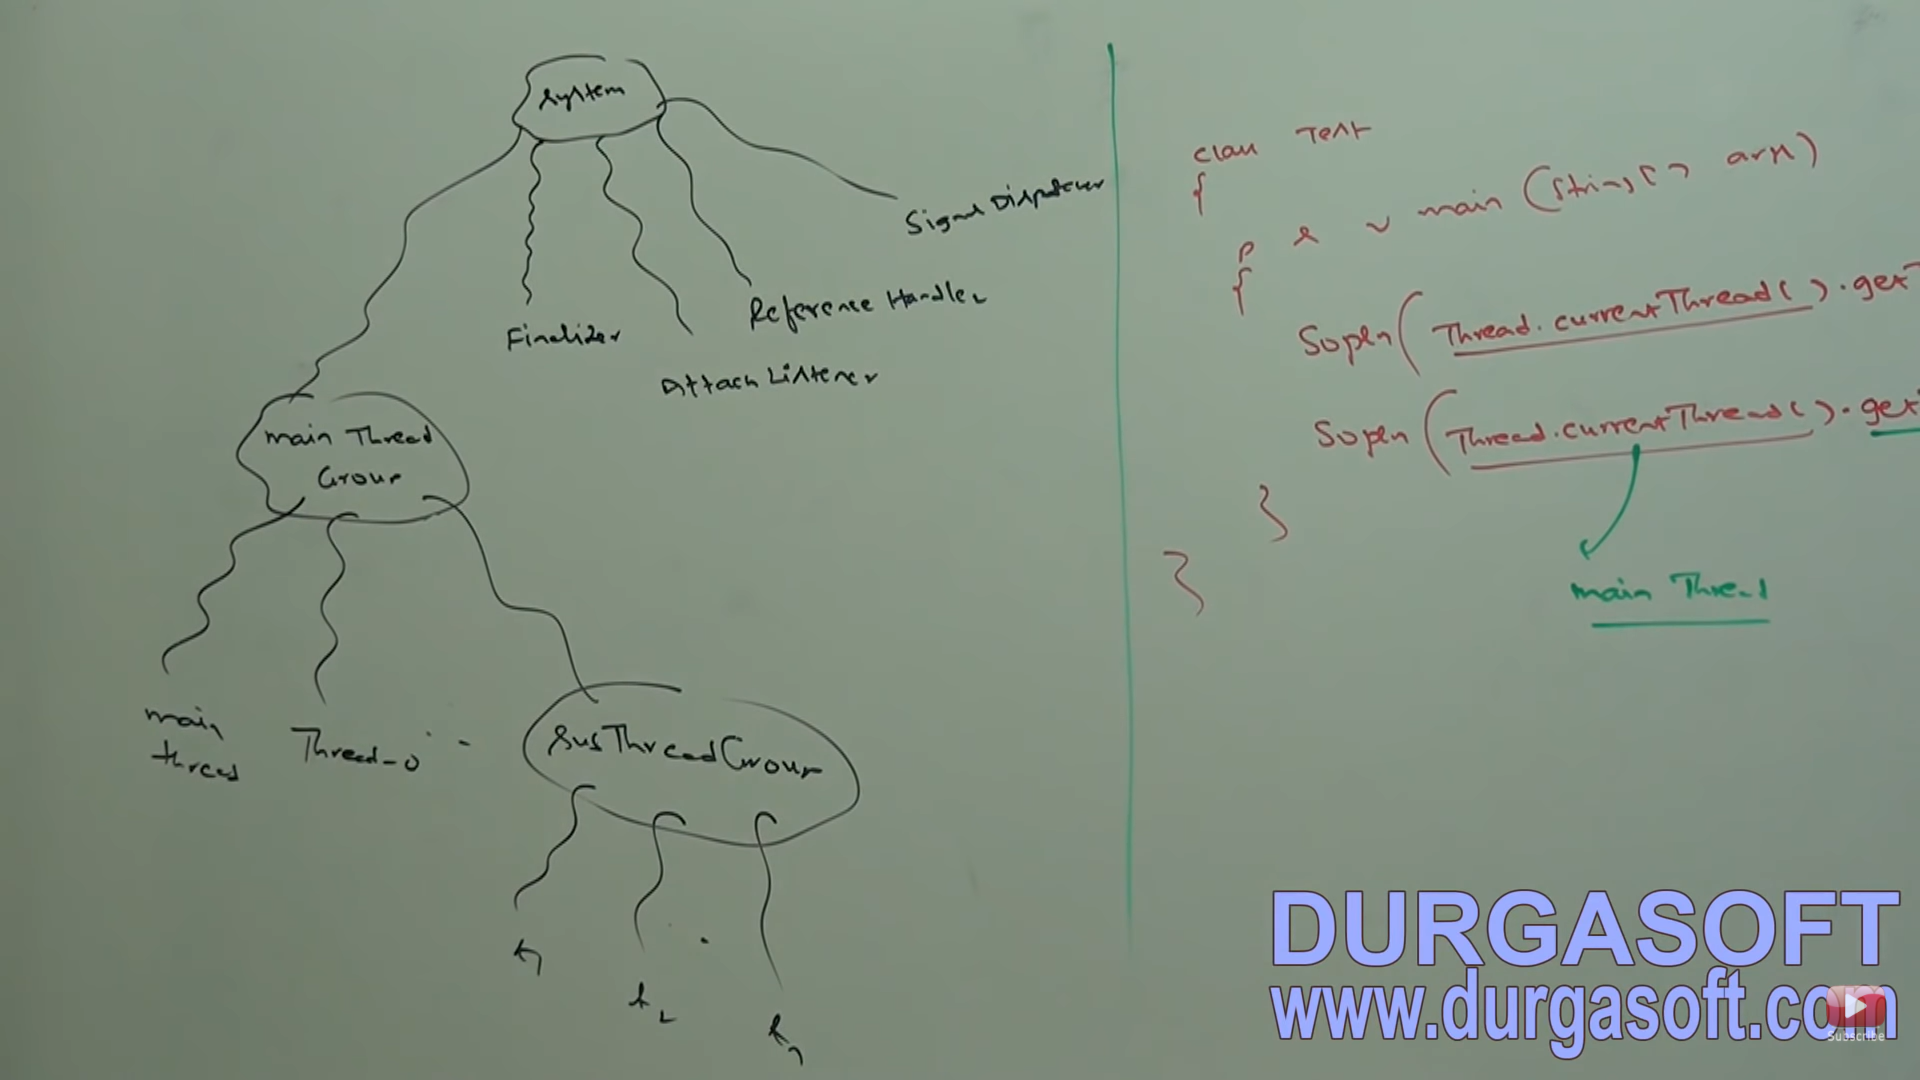 System
Signal Dispatcher
Reference Handler
Finalizer
Attach Listener
main Thread
Group
main
thread
Thread-0
SubThreadGroup
t1
t2
class Test
{
p s v main (String[] args)
{
Sopln(Thread.currentThread().getT
Sopln(Thread.currentThread().getT
}
}
main Thread
DURGASOFT
www.durgasoft.com
Subscribe